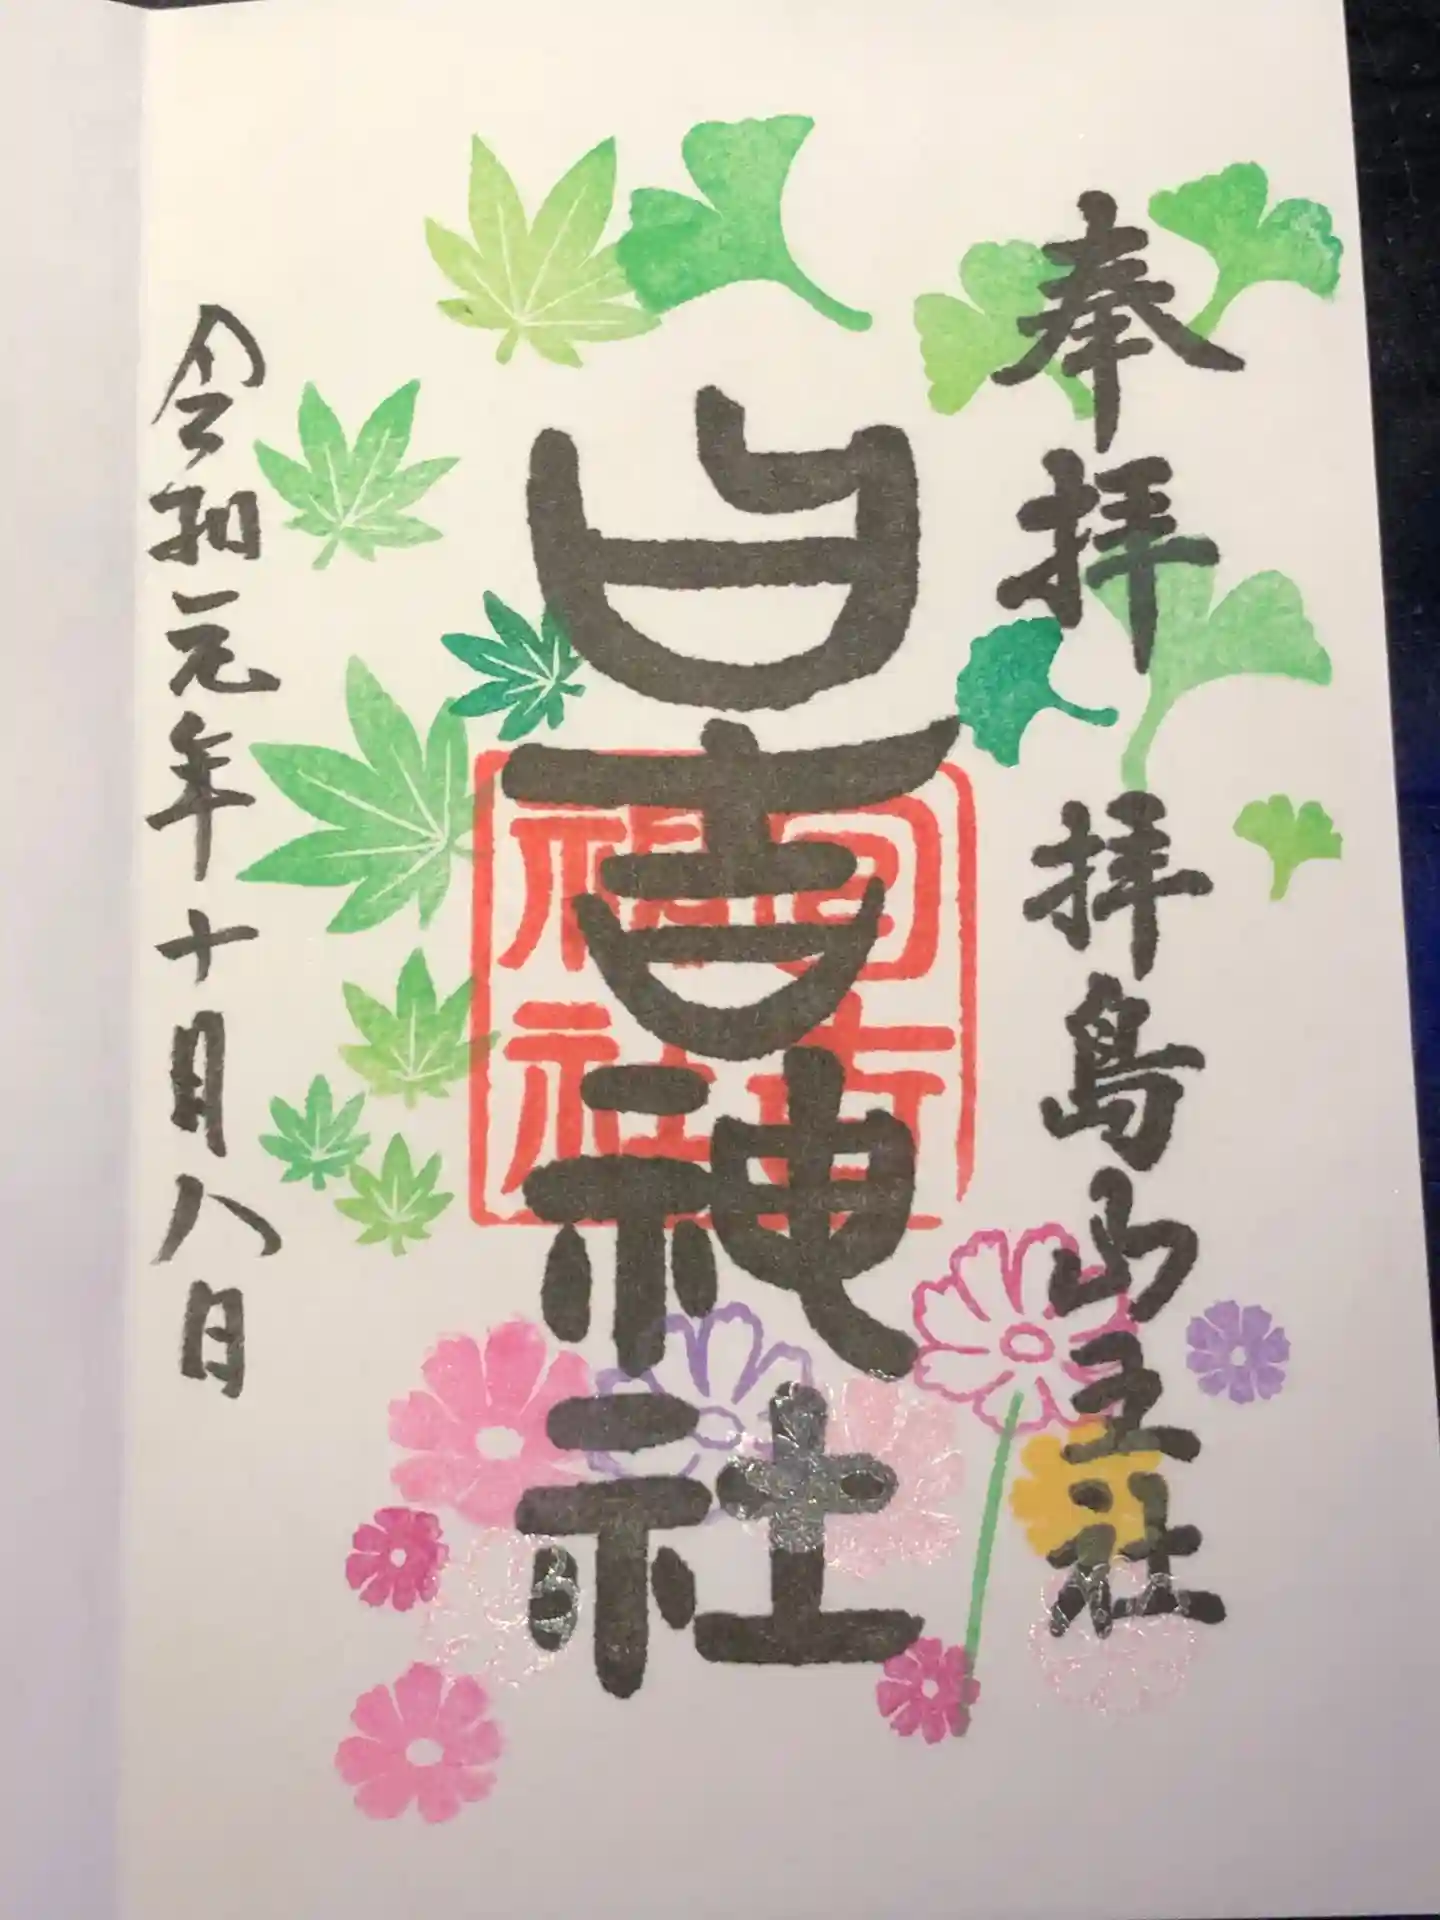 奉拝 拝島山王社
日吉神社
日吉
神社
令和元年十月八日